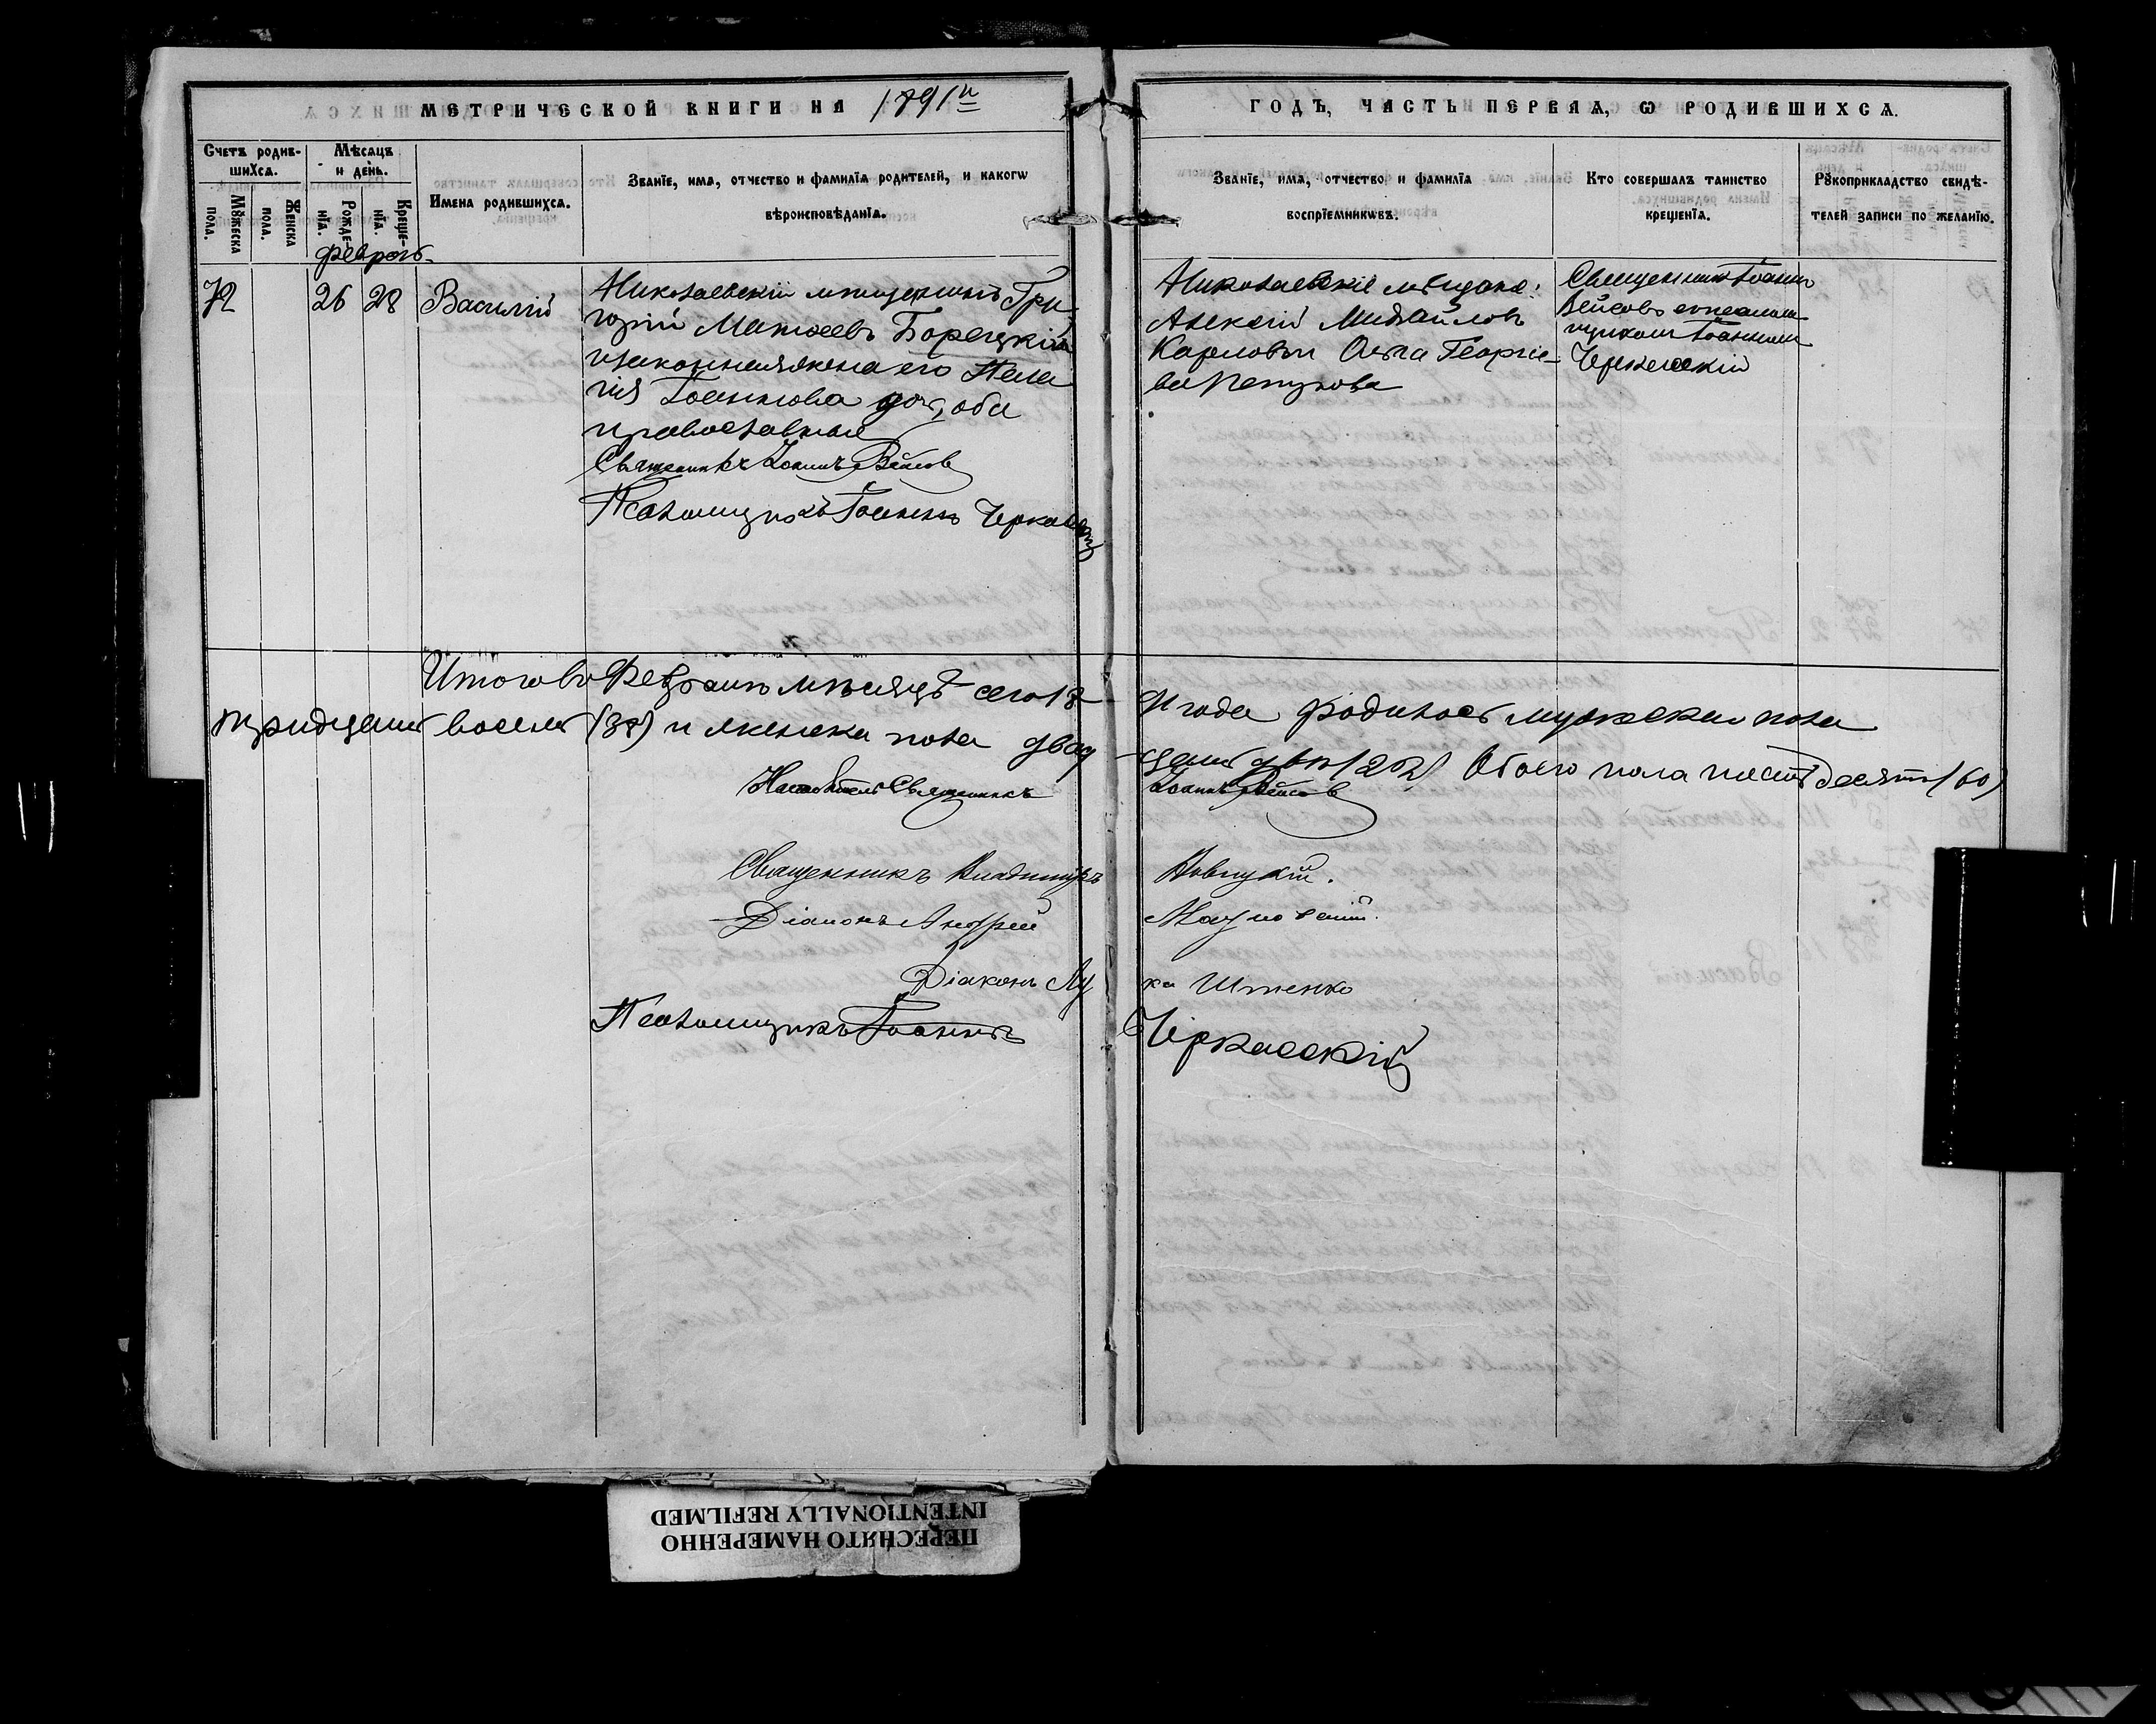 МЕТРИЧЕСКОЙ КНИГИ НА 1891й
ГОДЪ, ЧАСТЬ ПЕРВАѦ, Ѡ РОДИВШИХСѦ.
Счетъ родив-
шихсѧ.
Мѣсѧцъ
и день.
Имена родившихсѧ.
Званїе, имѧ, отчество и фамилїѧ родителей, и какогѡ
вѣроисповѣданїѧ.
Мꙋжеска
пола.
Женска
пола.
Рожде-
нїѧ.
Креще-
нїѧ.
Званїе, имѧ, отчество и фамилїѧ
воспрїемникѡвъ.
Кто совершалъ таинство
крещенїѧ.
Рꙋкоприкладство свидѣ-
телей записи по желанїю.
72
26
28
Василій
Николаевскій мѣщанинъ Гри
горій Матѳеевъ Борецкій
и законная жена его Пела
гія Іоаннова доч, оба
православные
Священникъ Іоаннъ Вейсовъ
Псаломщикъ Іоаннъ
Николаевскіе мѣщане:
Алексій Михайловъ
Ольга Георгіе-
ва
Священникъ Іоаннъ
Вейсовъ съ псалом
щикомъ Іоанномъ
Черкасскій
Итого въ Февралѣ мѣсяцѣ сего 18
91 года родилось мужеска пола
тридцать восемь (38) и женска пола двад
цать два (22) Обоего пола шестьдесятъ (60)
Настоятель Священникъ
Іоаннъ Вейсовъ
Священникъ Владиміръ
Новицкій.
Діаконъ Андрей
Діаконъ Лу
ка Штенко
Псаломщикъ Іоаннъ
Черкасскій
ПЕРЕСНЯТО НАМЕРЕННО
INTENTIONALLY REFILMED